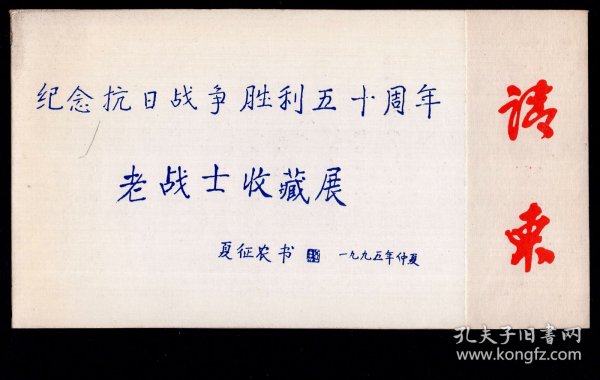 纪念抗日战争胜利五十周年
老战士收藏展
夏征农书 一九九五年仲夏
请柬
孔夫子旧书网
www.kongfz.com